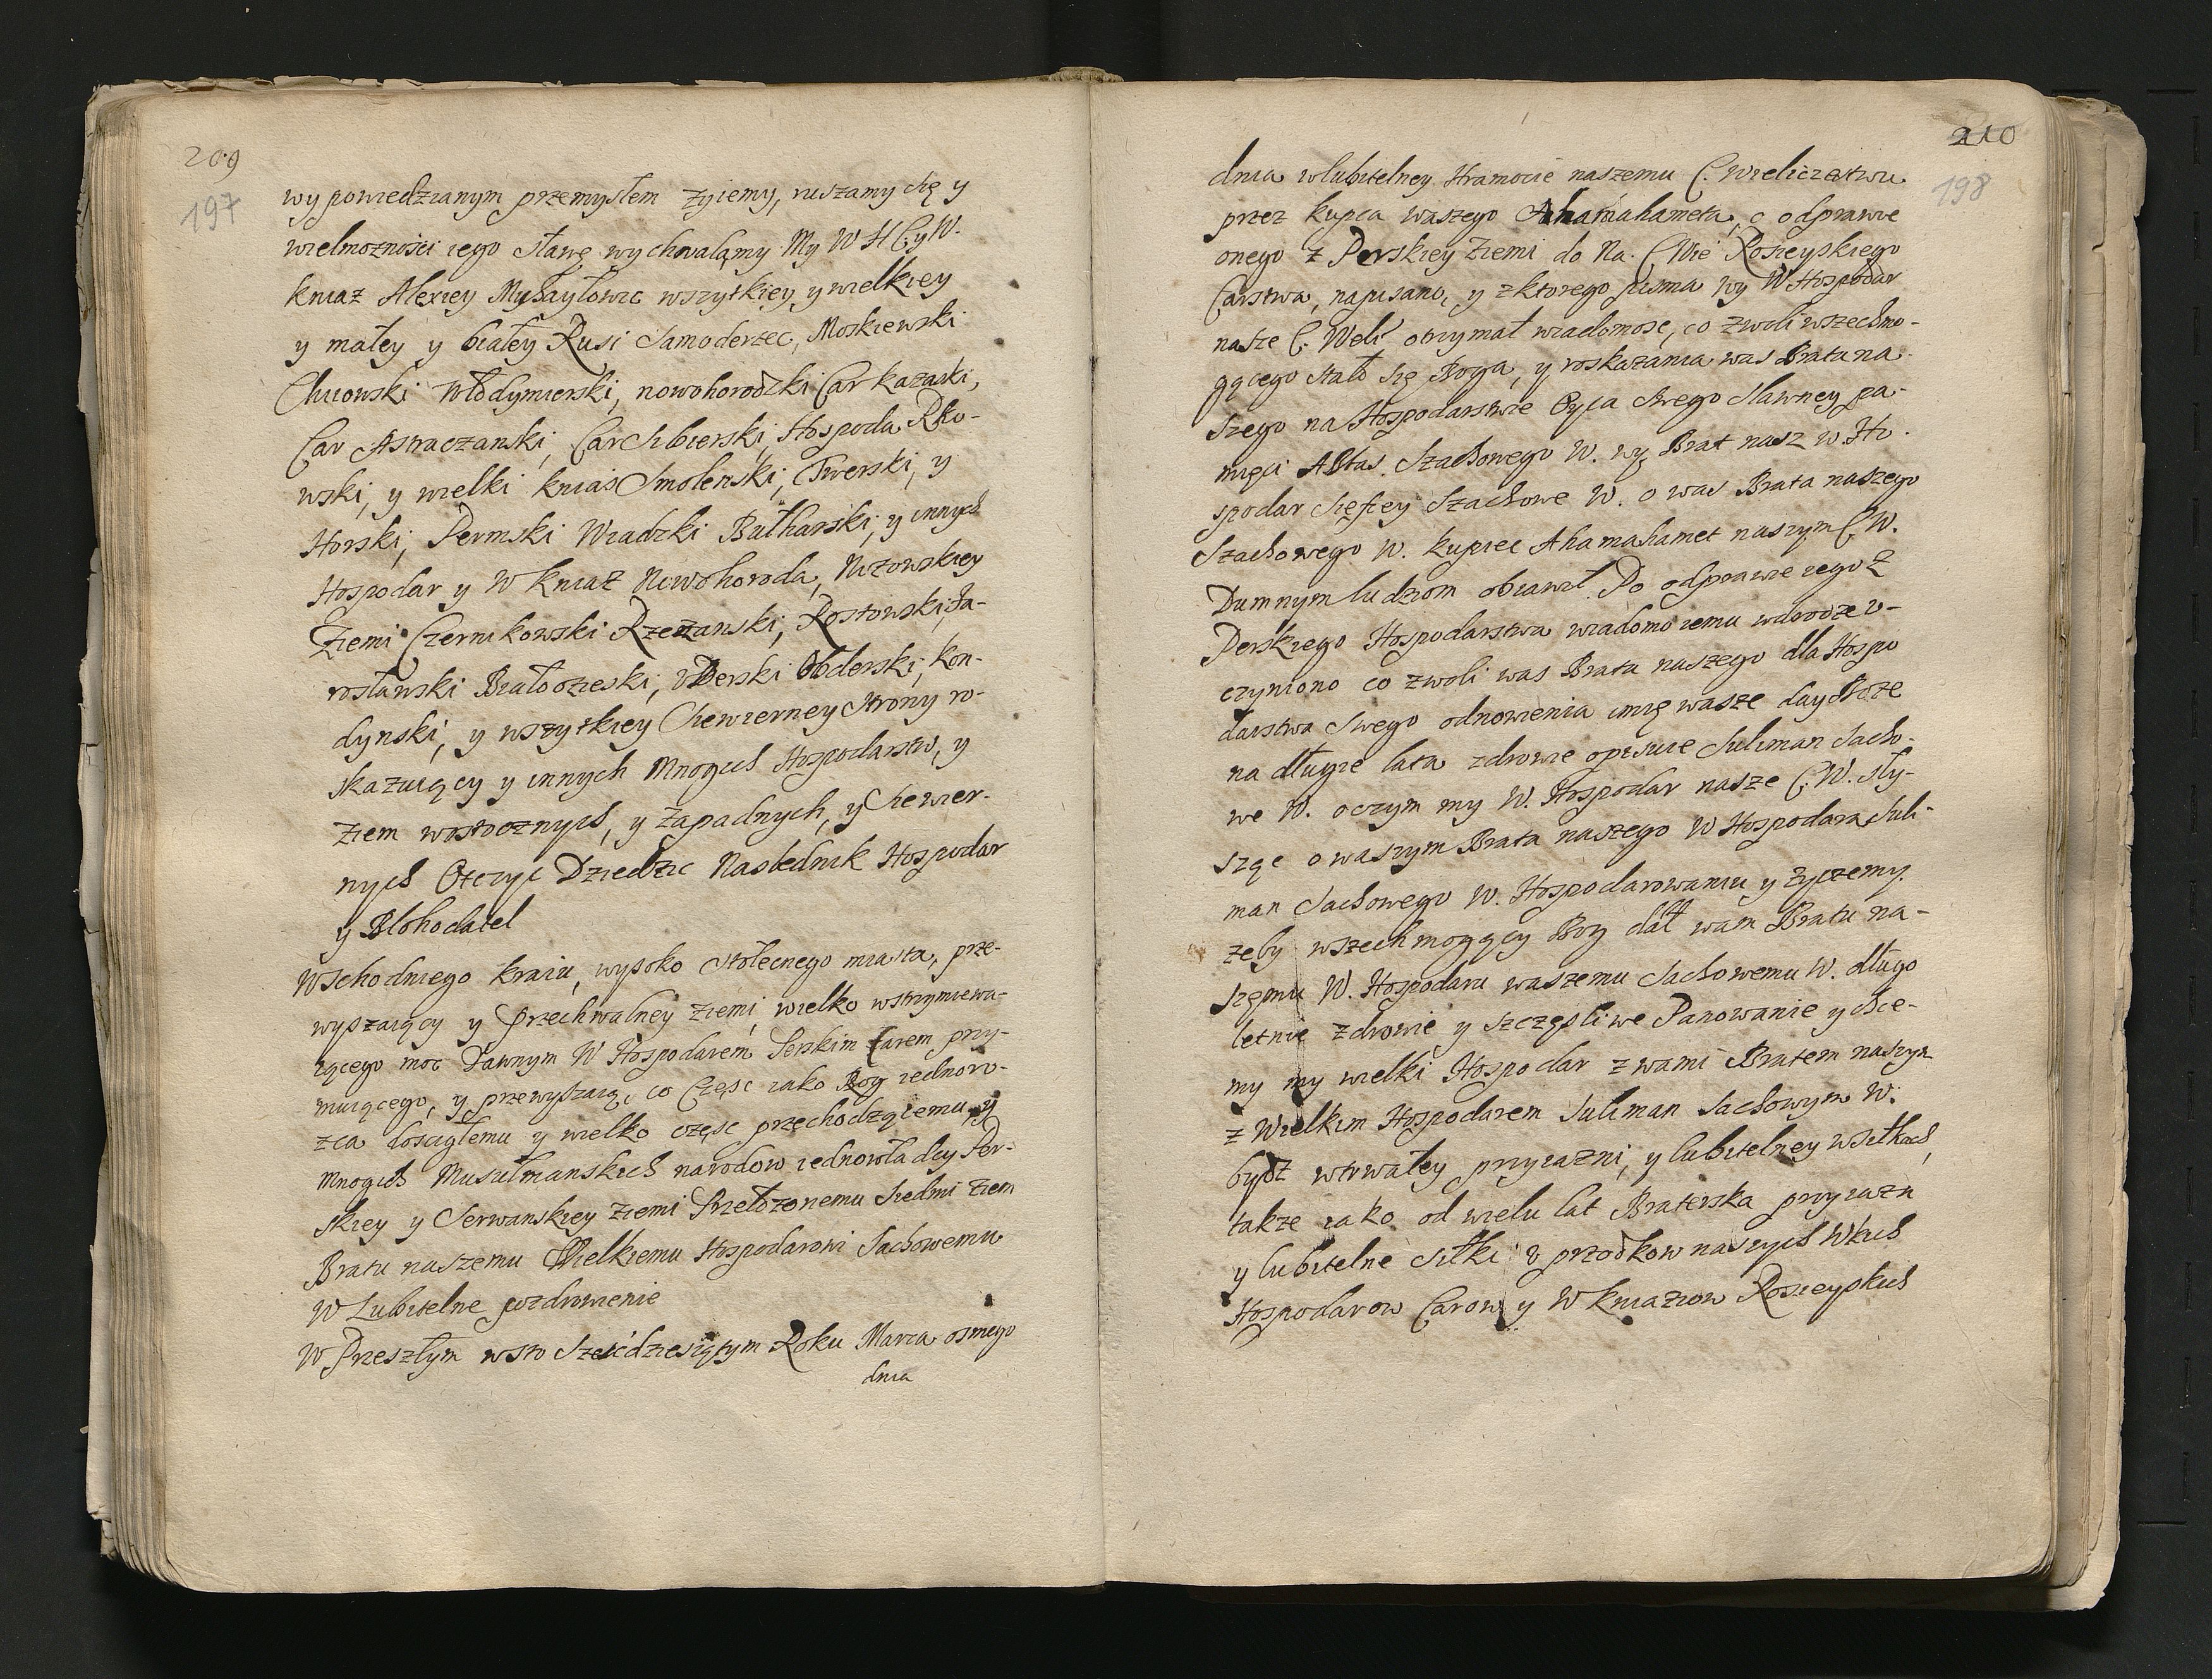 209
197
wypowiedzianym przemysłem żyiemy, ruszamy się y
wielmożności iego sławę wychwalamy My W H C y W.
kniaz Alexiey Myhayłowic wszytkiey y wielkiey
y małey y białey Rusi Samoderzec, Moskiewski
Chiowski Włodymierski, nowohorodzki Car kazaski,
Car Astraczanski, Car Sibierski, Hospoda Pko-
wski, y wielki knias Smolenski, Twerski, y
Horski, Permski Wiadzki Bulharski, y innych
Hospodar y W kniaz Nowohoroda, Nizowskiey
Ziemi Czernikowski Rzezanski, Rostowski, Ja-
rosławski Białoozieski, Uderski Obderski, kon-
dynski, y wszytkiey Chewierney strony ro-
skazuiący y innych Mnogich Hospodarstw, y
Ziem wostocznych, y Zapadnych, y Chewier-
nych Otczyc Dziedzic Naslednik Hospodar
y Blohodatel
Wschodniego kraiu, wysoko stołecznego miasta, prze-
wyszaiący y przechwalney ziemi, wielko wstrzymiewa-
iącego moc Dawnym W Hospodarem Perskim Carem przy-
muiącego, y przewyszaią, co Częsc iako Bog iednoro-
zca doscigłemu y wielko częsc przechodzączemu y
Mnogich Musulmanskich narodow iednowładcy Per-
skiey y Serwanskiey ziemi Przełozonemu siedmi ziem
Bratu naszemu Wielkiemu Hospodarowi Sachowemu
W Lubitelne pozdrowienie
W Przeszłym w sto Szescdziesiątym Roku Marca osmego
dnia
210
198
dnia w lubitelney Hramocie naszemu C. Wieliczestwu
przez kupca waszego Ahamahameta, o odprawie
onego z Perskiey Ziemi do Na. C Wie Rosieyskiego
Carstwa, napisano, y z ktorego pisma wy W Hospodar
nasze C. Weli otrzymał wiadomosc, co z woli wszechmo-
gącego stało się Boga, y roskazania was Brata na-
szego na Hospodarstwie Oyca swego sławney pa-
mięci Abbas Szachowego W. wy Brat nasz W. Ho-
spodar Szefiey Szachowe W. o was Brata naszego
Szachowego W. kupiec Ahamahamet naszym C W.
Dumnym ludziom obiawił. Po odprawie iego z
Perskiego Hospodarstwa wiadomo iemu w drodze u-
czyniono co z woli was Brata naszego dla Hospo
darstwa Swego odnowienia imię wasze day Boze
na długie lata zdrowie opisuie Suliman Sacho-
we W. o czym my W. Hospodar nasze C. W. sły-
sząc o waszym Brata naszego W Hospodara Suli-
man Sachowego W. Hospodarowaniu y życzemy.
zeby wszechmogący Bog dał wam Bratu na-
szemu W. Hospodaru waszemu Sachowemu W. długo
letnie zdrowie y szczęsliwe Panowanie y chce-
my my wielki Hospodar z wami Bratem naszym
z Wielkim Hospodarem Suliman Sachowym W.
bydz w trwałey przyiazni, y lubitelney w siłkach,
takze iako od wielu lat Braterska przyiazn
y lubitelne siłki v przodkow naszych Wkich
Hospodarow Carow y W kniaziow Rosieyskich